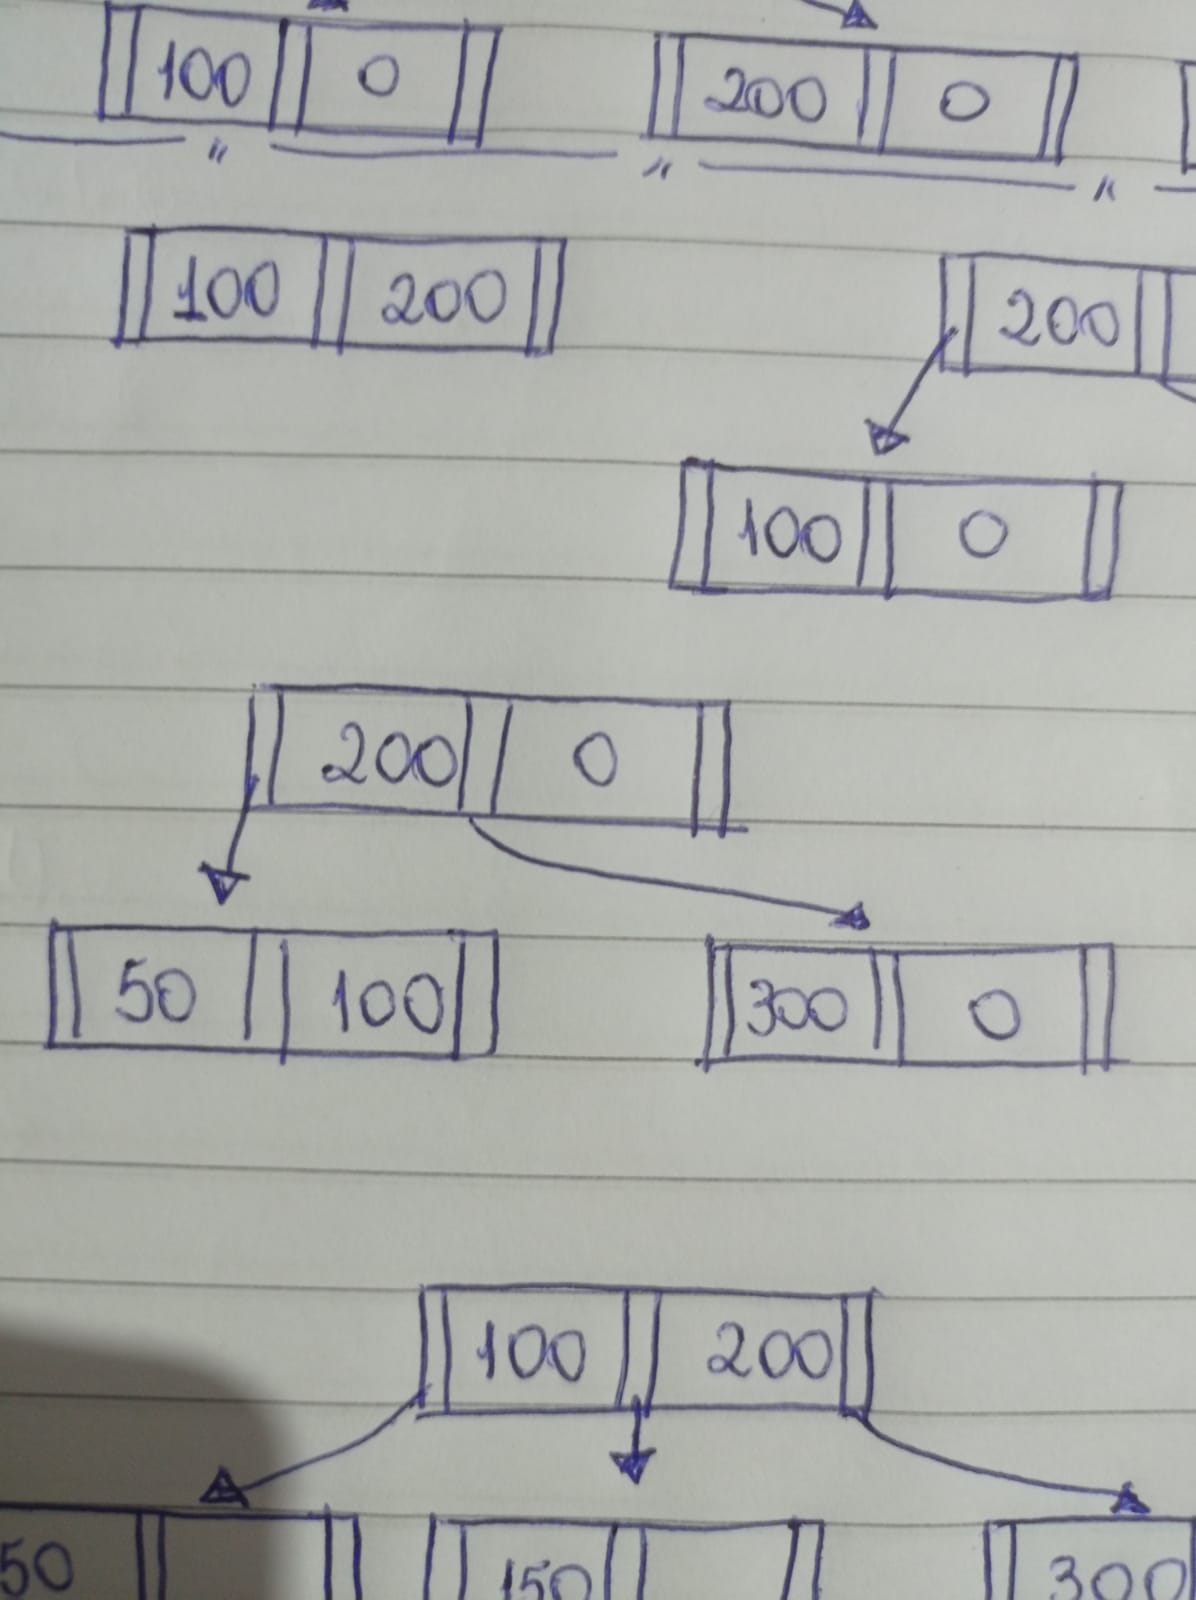 100 0 200 0
" " "
100 200 200
100 0
200 0
50 100 300 0
100 200
50 150 300